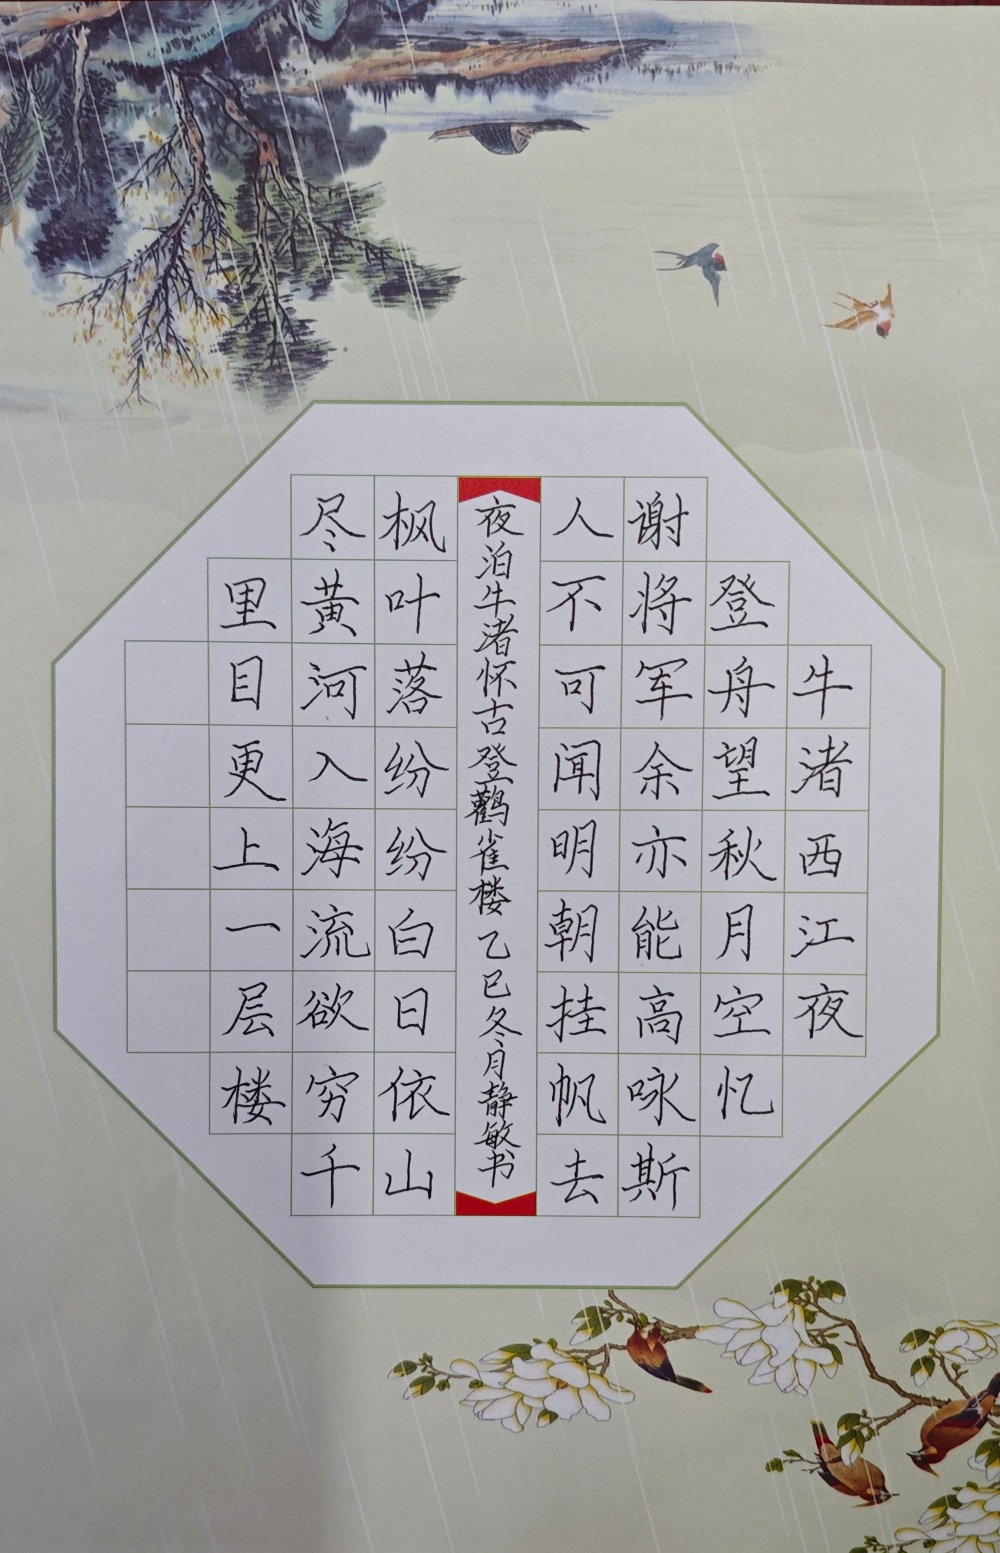 牛渚西江夜
登舟望秋月空忆
谢将军余亦能高咏斯
人不可闻明朝挂帆去
夜泊牛渚怀古登鹳雀楼 乙巳冬月静敏书
枫叶落纷纷白日依山
尽黄河入海流欲穷千
里目更上一层楼